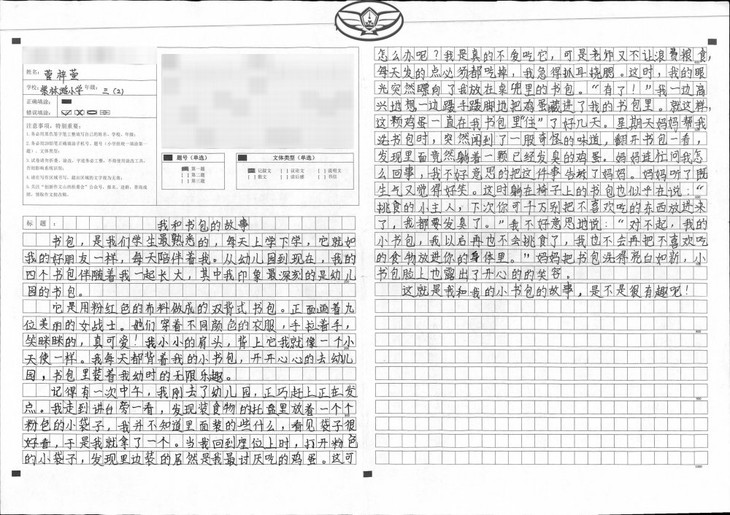 姓名：曹梓萱
学校：紫林湖小学 年级：三（2）
正确填涂：
错误填涂：
注意事项，特别重要：
题号（单选）
第一题
第二题
第三题
文体类型（单选）
记叙文
议论文
说明文
散文
书信
标题：
我和书包的故事
书包，是我们学生最熟悉的，每天上学下学，它就如
我的好朋友一样，每天陪伴着我。从幼儿园到现在，我的
四个书包伴随着我一起长大，其中我印象最深刻的是幼儿
园的书包。
它是用粉红色的布料做成的双背式书包。正面画着九
位美丽的女战士。她们穿着不同颜色的衣服，手拉着手，
笑眯眯的，真可爱！我小小的肩头，背上它我就像一个小
天使一样。我每天都背着我的小书包，开开心心的去幼儿
园，书包里装着我幼时的无限乐趣。
记得有一次中午，我刚去了幼儿园，正巧赶上正在发
点。我走到讲台旁一看，发现装食物的托盘里放着一个个
粉色的小袋子，我并不知道里面装的些什么，看见袋子很
好看，于是我就拿了一个。当我回到座位上时，打开粉色
的小袋子，发现里边装的居然是我最讨厌吃的鸡蛋。这可
怎么办呢？我是真的不爱吃它，可是老师又不让浪费粮食，
每天发的点必须都吃掉，我急得抓耳挠腮。这时，我的眼
光突然瞟向了我放在桌兜里的书包。“有了！”我一边高
兴地想一边蹑手蹑脚地把鸡蛋藏进了我的书包里。就这样，
这颗鸡蛋一直在我书包里“住”了好几天。星期天妈妈帮我
洗书包时，突然闻到了一股奇怪的味道，翻开书包一看，
发现里面竟然躺着一颗已经发臭的鸡蛋。妈妈连忙问我怎
么回事，我不好意思的把这件事告诉了妈妈。妈妈听了既
生气又觉得好笑。这时躺在椅子上的书包也似乎在说：“
挑食的小主人，下次你可千万别把不喜欢吃的东西放进来
了，我都要发臭了。”我不好意思地说：“对不起，我的
小书包，我以后再也不会挑食了，我也不会再把不喜欢吃
的食物放进你的身体里。”妈妈把书包洗得亮白如新，小
书包脸上也露出了开心的的笑容。
这就是我和我的小书包的故事，是不是很有趣吧！